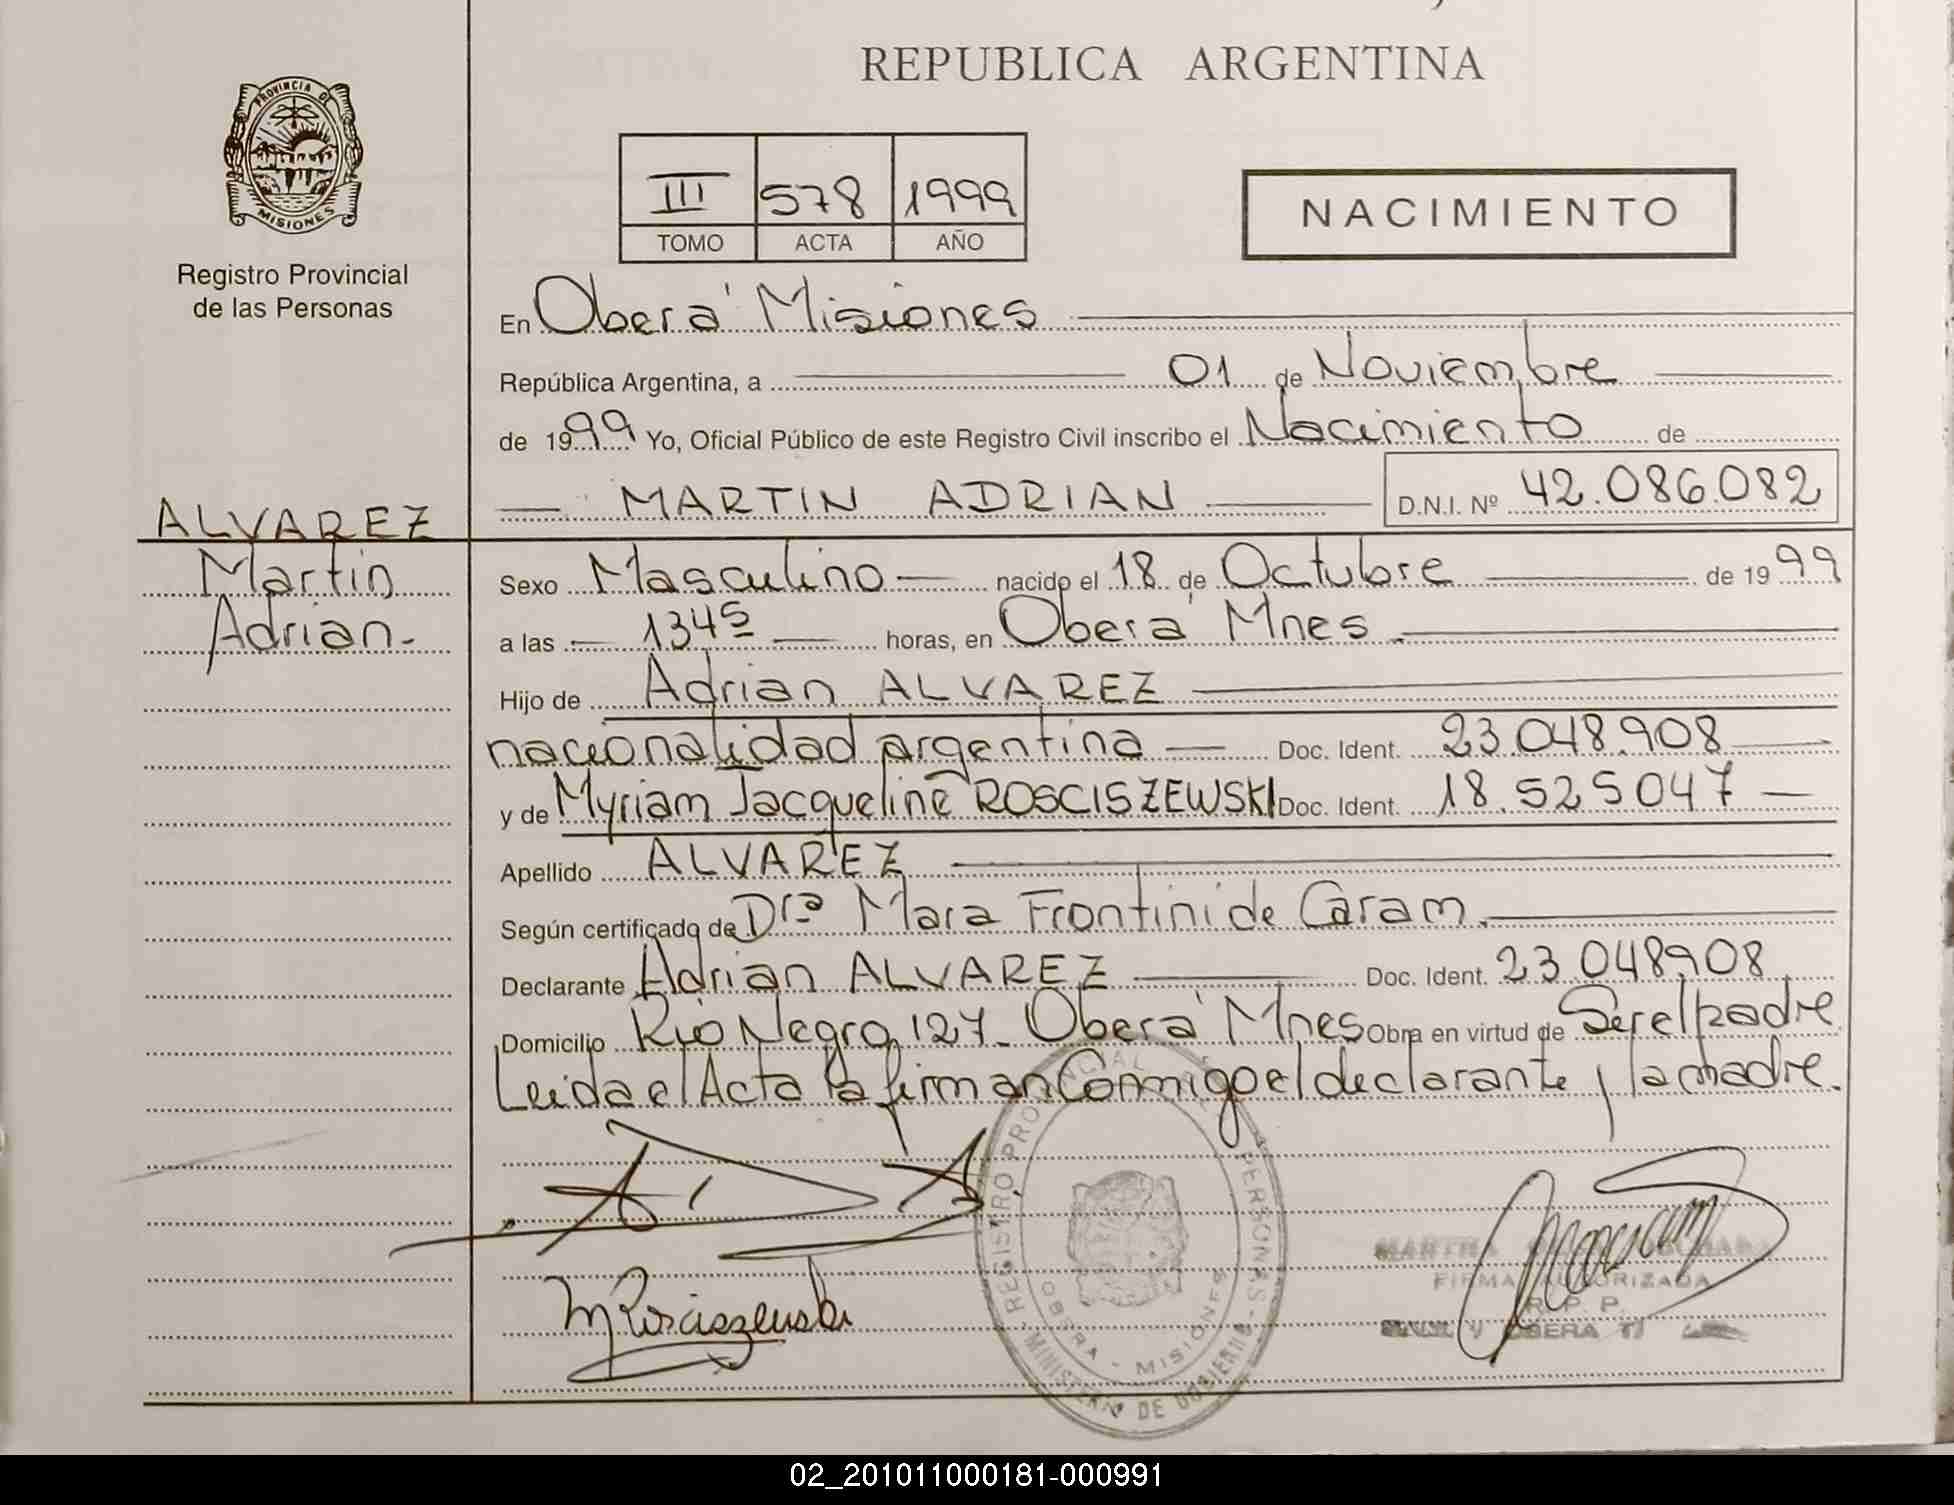 REPUBLICA ARGENTINA
PROVINCIA DE
MISIONES
Registro Provincial
de las Personas
III 578 1999
TOMO ACTA AÑO
NACIMIENTO
En Oberá Misiones
República Argentina, a 01 de Noviembre
de 1999 Yo, Oficial Público de este Registro Civil inscribo el Nacimiento de
MARTIN ADRIAN D.N.I. Nº 42.086.082
ALVAREZ
Martin
Adrian.
Sexo Masculino nacido el 18 de Octubre de 1999
a las 1345 horas, en Oberá Mnes
Hijo de Adrian ALVAREZ
nacionalidad argentina Doc. Ident. 23.048.908
y de Myriam Jacqueline ROSCISZEWSKI Doc. Ident. 18.525047
Apellido ALVAREZ
Según certificado de Drª Mara Frontini de Caram.
Declarante Adrian ALVAREZ Doc. Ident. 23.048908
Domicilio Rio Negro 127. Oberá Mnes Obra en virtud de Ser el padre
Leida el Acta la firman Conmigo el declarante y la madre.
M Rosciszewski
REGISTRO PROVINCIAL DE LAS PERSONAS
OBERA - MISIONES
MINISTERIO DE GOBIERNO
MARTHA
FIRMA AUTORIZADA
R. P. P.
OBERA
02_201011000181-000991